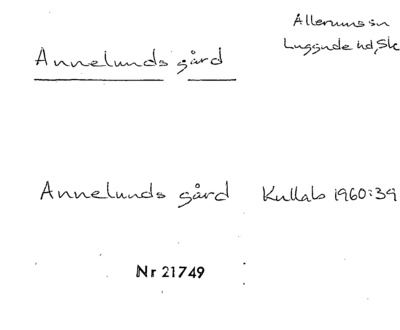 Allerums sn
Luggude hd, Sk
Annelunds gård
Annelunds gård Kullab 1960:39
Nr 21749